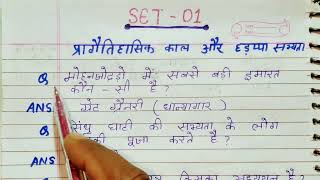 SET - 01
प्रागैतिहासिक काल और हड़प्पा सभ्यता
Q मोहनजोदड़ो में सबसे बड़ी इमारत
कौन - सी है ?
ANS ग्रेट ग्रैनरी (धान्यागार)
Q सिंधु घाटी की सभ्यता के लोग
पूजा करते है ?
ANS
किसका अध्ययन है ?